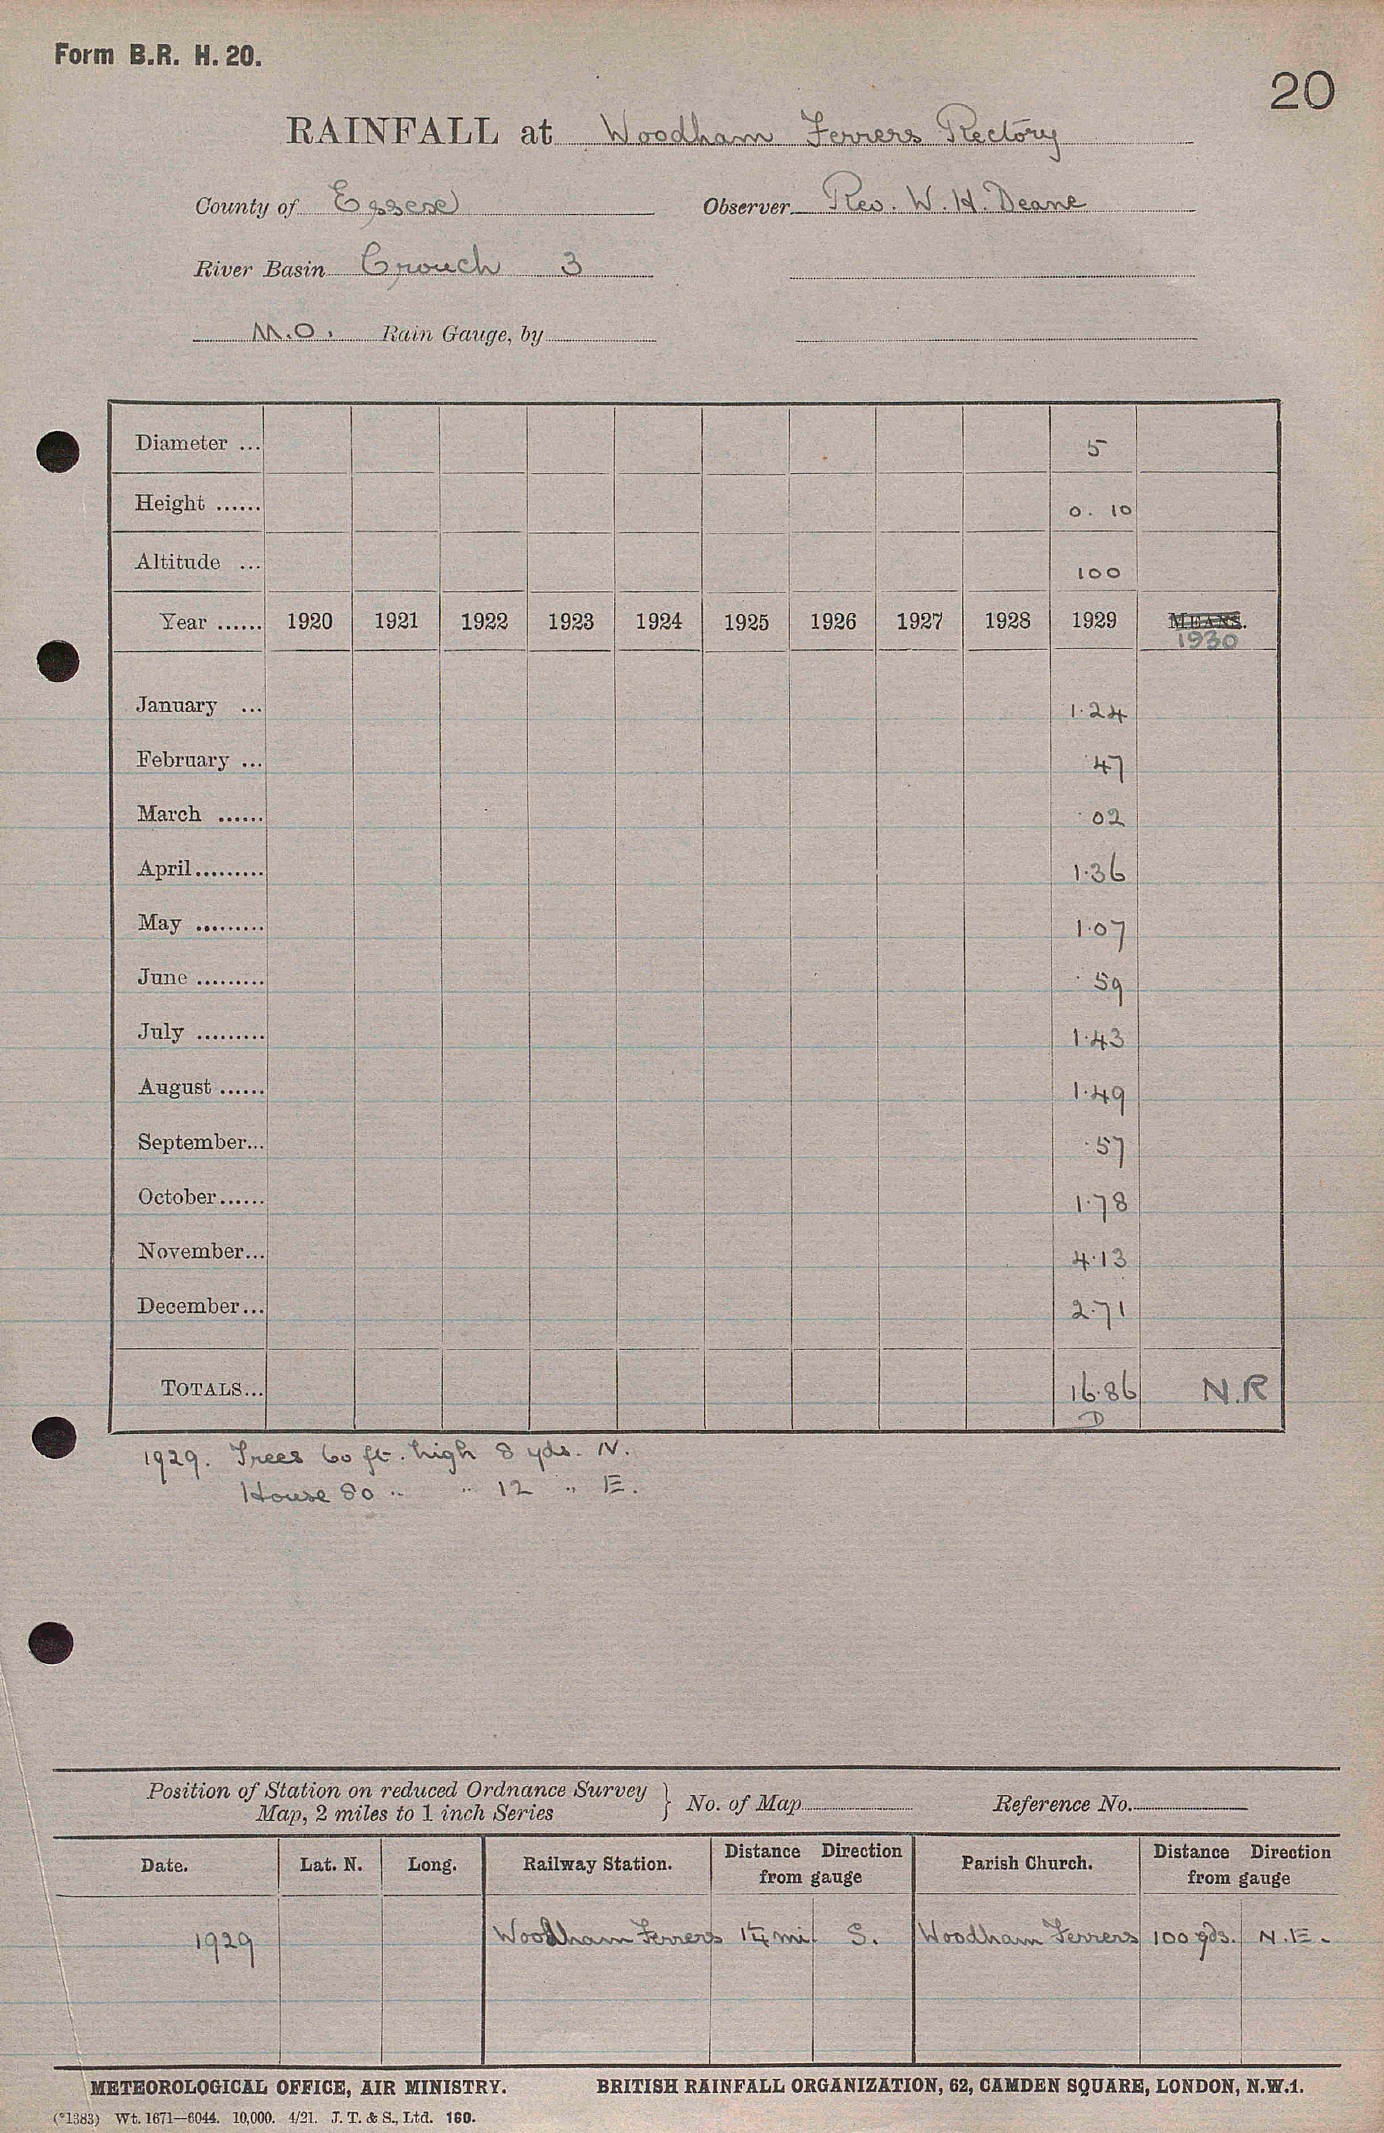 Form B.R. H. 20.
20
RAINFALL at Woodham Ferrers Rectory
County of Essex Observer Rev. W. H. Deane
River Basin Crouch 3
M.O. Rain Gauge, by
Diameter ... 5
Height ...... 0. 10
Altitude ... 100
Year ...... 1920 1921 1922 1923 1924 1925 1926 1927 1928 1929 MEANS.
1930
January ... 1.24
February ... .47
March ...... .02
April......... 1.36
May ......... 1.07
June ......... .59
July ......... 1.43
August ...... 1.49
September... .57
October...... 1.78
November... 4.13
December... 2.71
TOTALS... 16.86 N.R
D
1929. Trees 60 ft. high 8 yds. N.
House 80 " " 12 " E.
Position of Station on reduced Ordnance Survey
Map, 2 miles to 1 inch Series } No. of Map Reference No.
Date. Lat. N. Long. Railway Station. Distance Direction from gauge Parish Church. Distance Direction from gauge
1929 Woodham Ferrers 1¼ mi S. Woodham Ferrers 100 yds. N.E.
METEOROLOGICAL OFFICE, AIR MINISTRY. BRITISH RAINFALL ORGANIZATION, 62, CAMDEN SQUARE, LONDON, N.W.1.
(*1383) Wt. 1671—6044. 10,000. 4/21. J. T. & S., Ltd. 160.